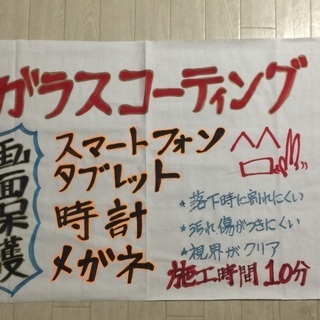 ガラスコーティング
画面保護
スマートフォン
タブレット
時計
メガネ
★落下時に割れにくい
★汚れ傷がつきにくい
★視界がクリア
施工時間10分